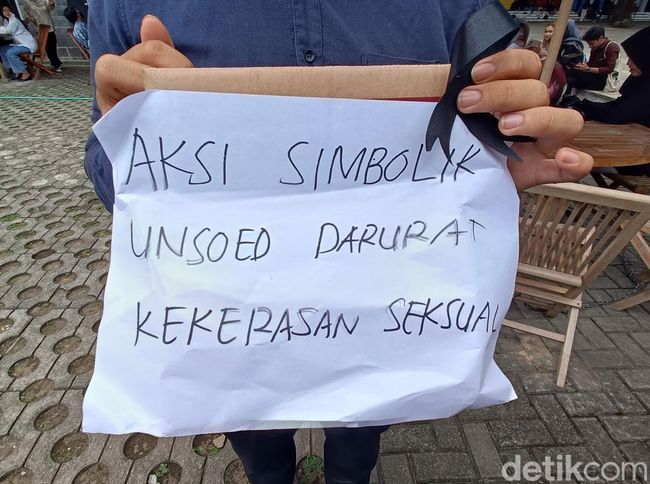 AKSI SIMBOLIK
UNSOED DARURAT
KEKERASAN SEKSUAL
detikcom